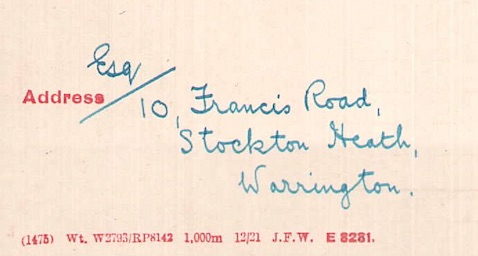 Esq
Address 10, Francis Road,
Stockton Heath,
Warrington.
(1475) Wt. W2793/RP8142 1,000m 12/21 J.F.W. E 8281.